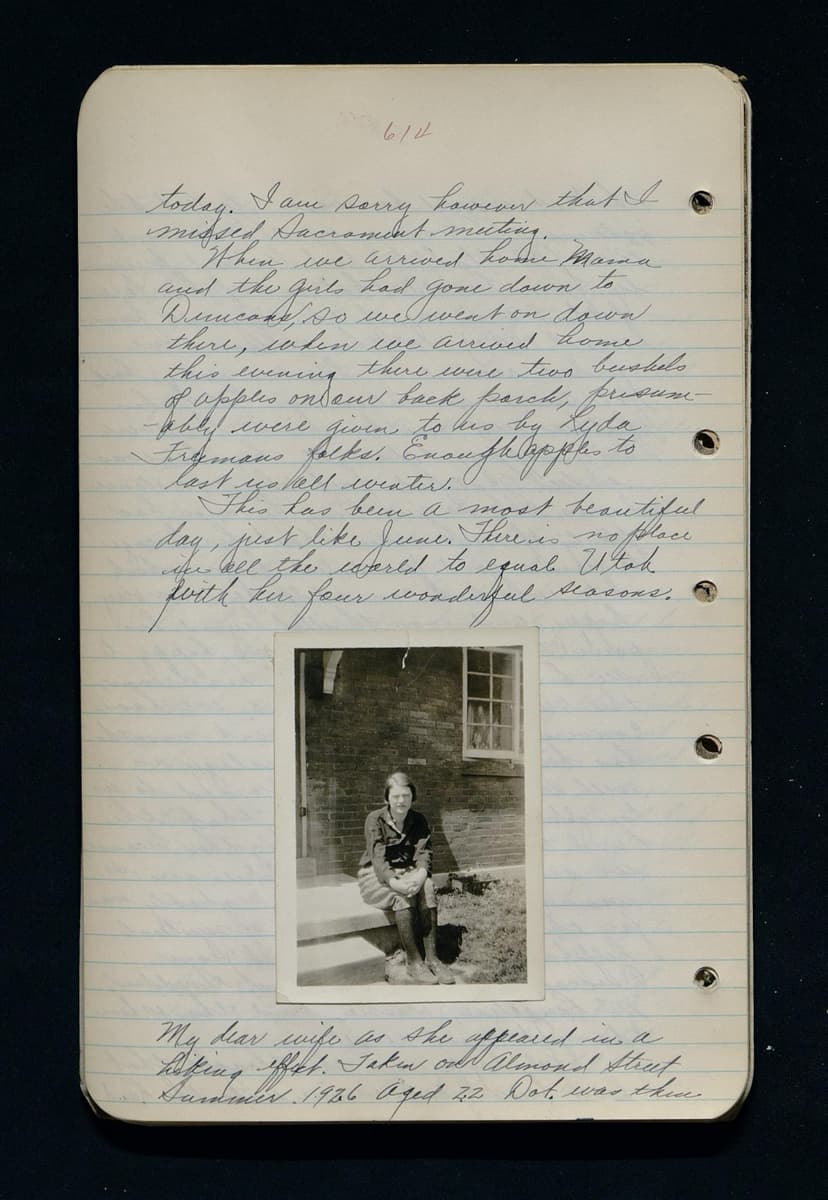 614
today. I am sorry however that I
missed Sacrament meeting.
When we arrived home Mama
and the girls had gone down to
Duncans, so we went on down
there, when we arrived home
this evening there were two bushels
of apples on our back porch, presum-
-ably were given to us by Lyda
Fremans folks. Enough apples to
last us all winter.
This has been a most beautiful
day, just like June. There is no place
in all the world to equal Utah
with her four wonderful seasons.
My dear wife as she appeared in a
hiking effect. Taken on Almond Street
Summer. 1926 Aged 22 Dot. was then